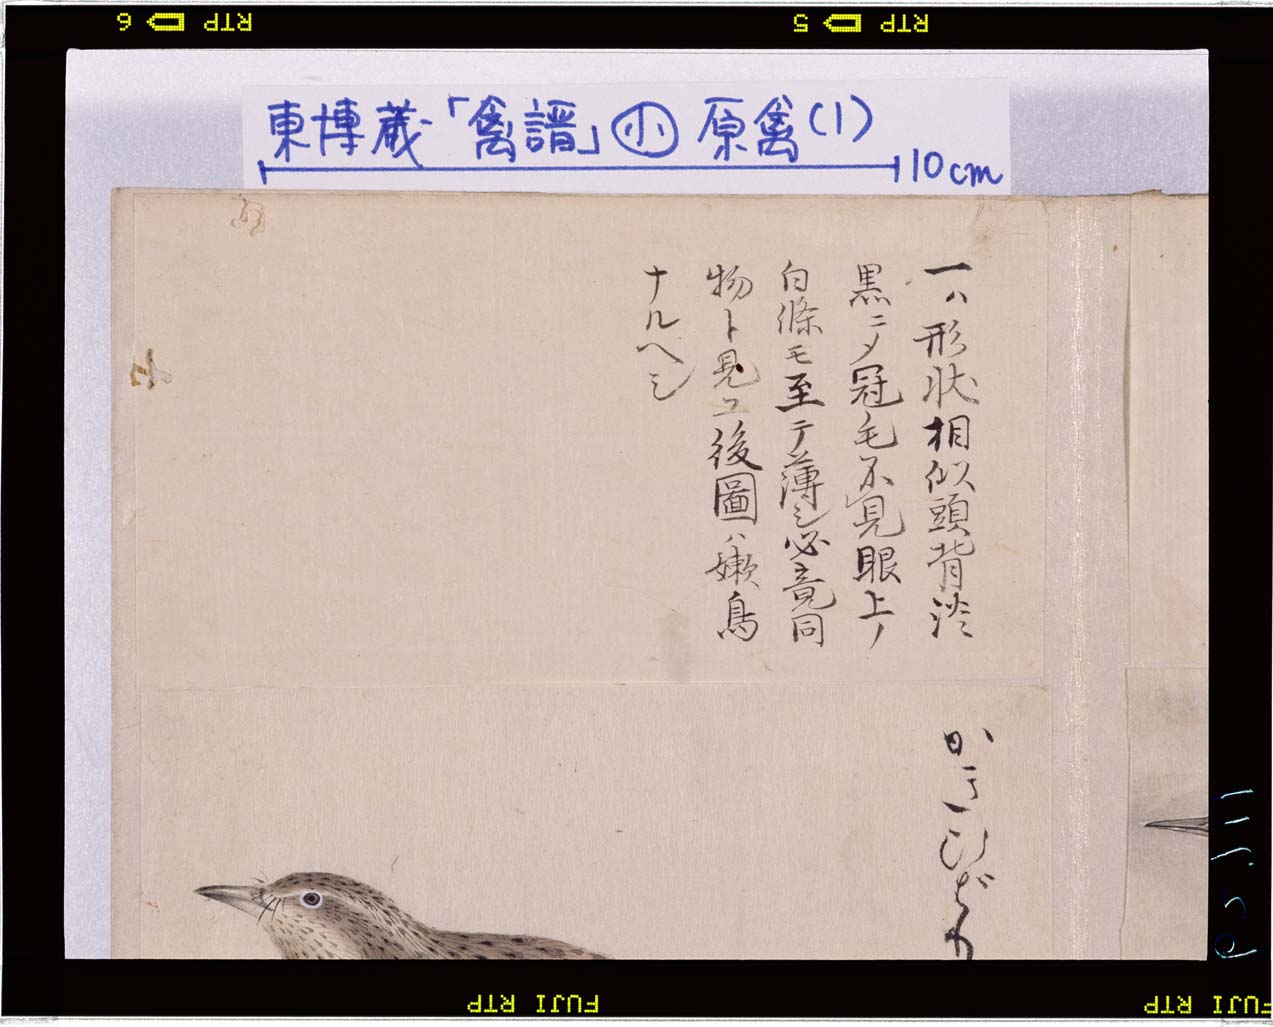 RTP 5
RTP 6
東博蔵「禽譜」小 原禽(1)
10cm
一ハ形状相似頭背淡
黒ニメ冠毛不見眼上ノ
白條モ至テ薄シ必竟同
物ト見ユ後圖ハ嫩鳥
ナルヘシ
かきひばり
FUJI RTP
FUJI RTP